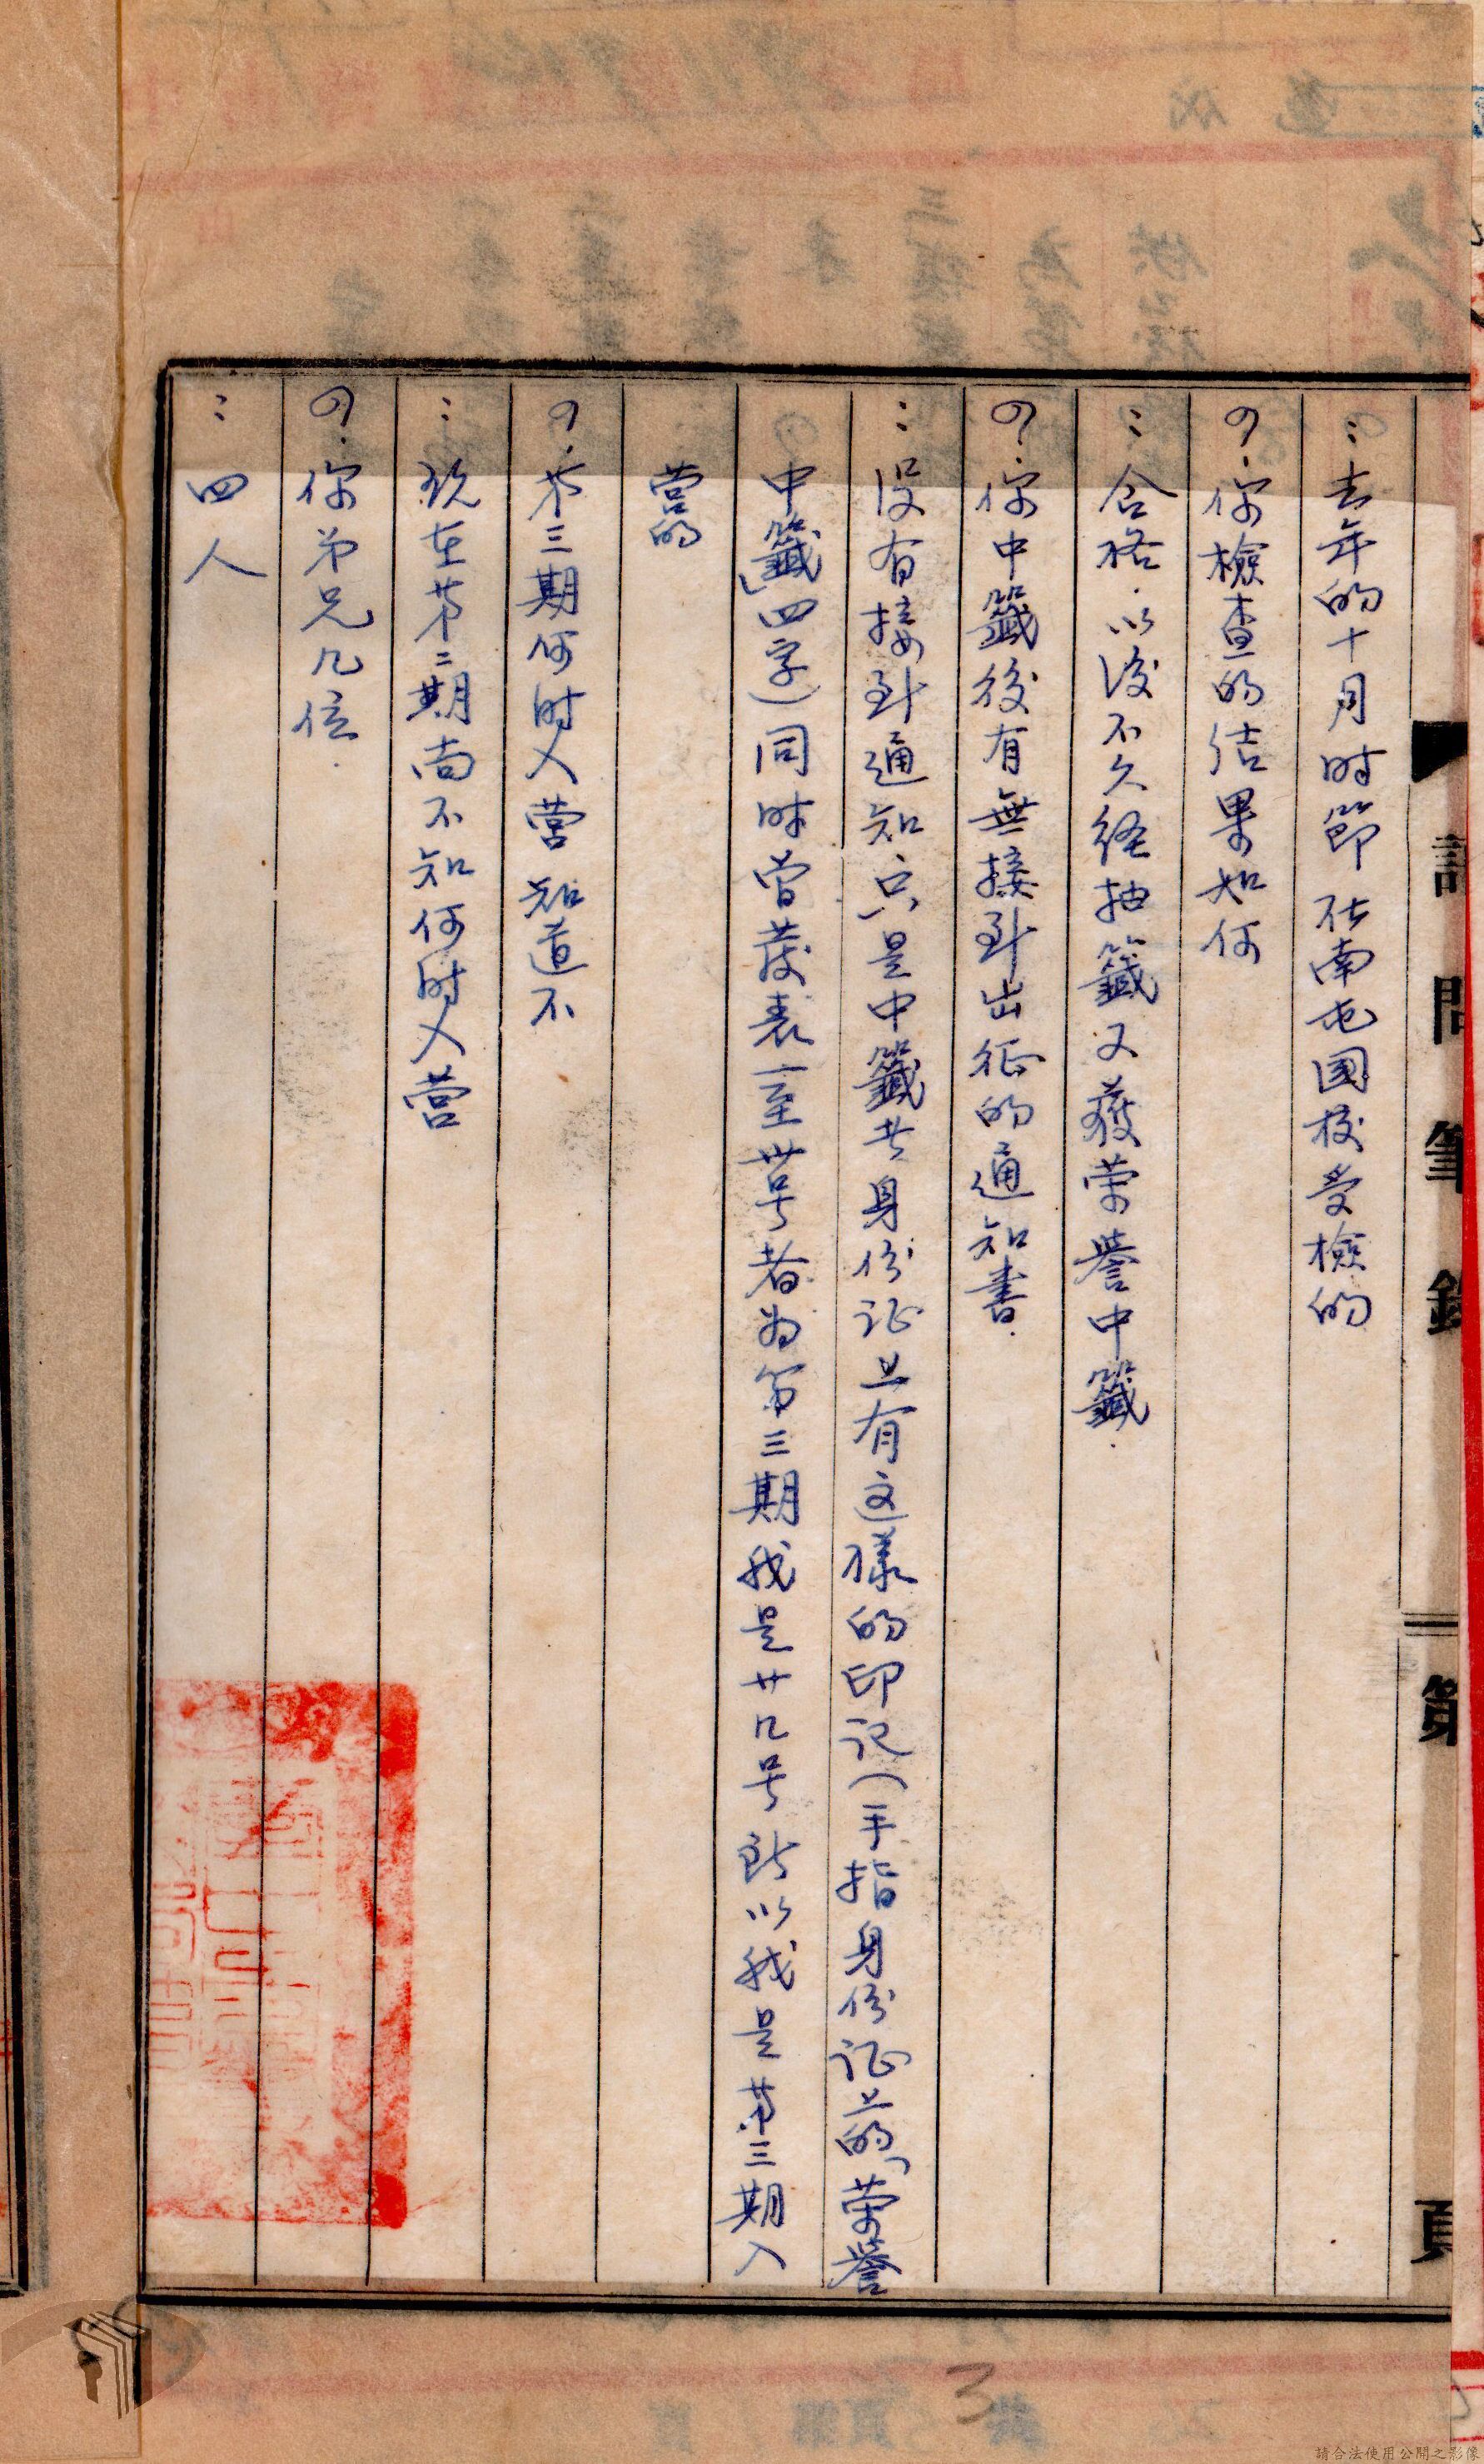 訊問筆錄 第 頁
：去年的十月时節在南屯國校受檢的
の．你檢查的结果如何
：合格．以後不久経抽籤又獲荣譽中籤．
の．你中籤後有無接到出征的通知書．
：没有接到通知只是中籤者身份证上有这樣的印记（手指身份证上的「荣譽
中籤」四字）同时曾發表一至卅号者为第三期我是廿几号所以我是第三期入
营的
の．第三期何时入营知道不
：现在第二期尚不知何时入营
の．你弟兄几位．
：四人
3
請合法使用公開之影像